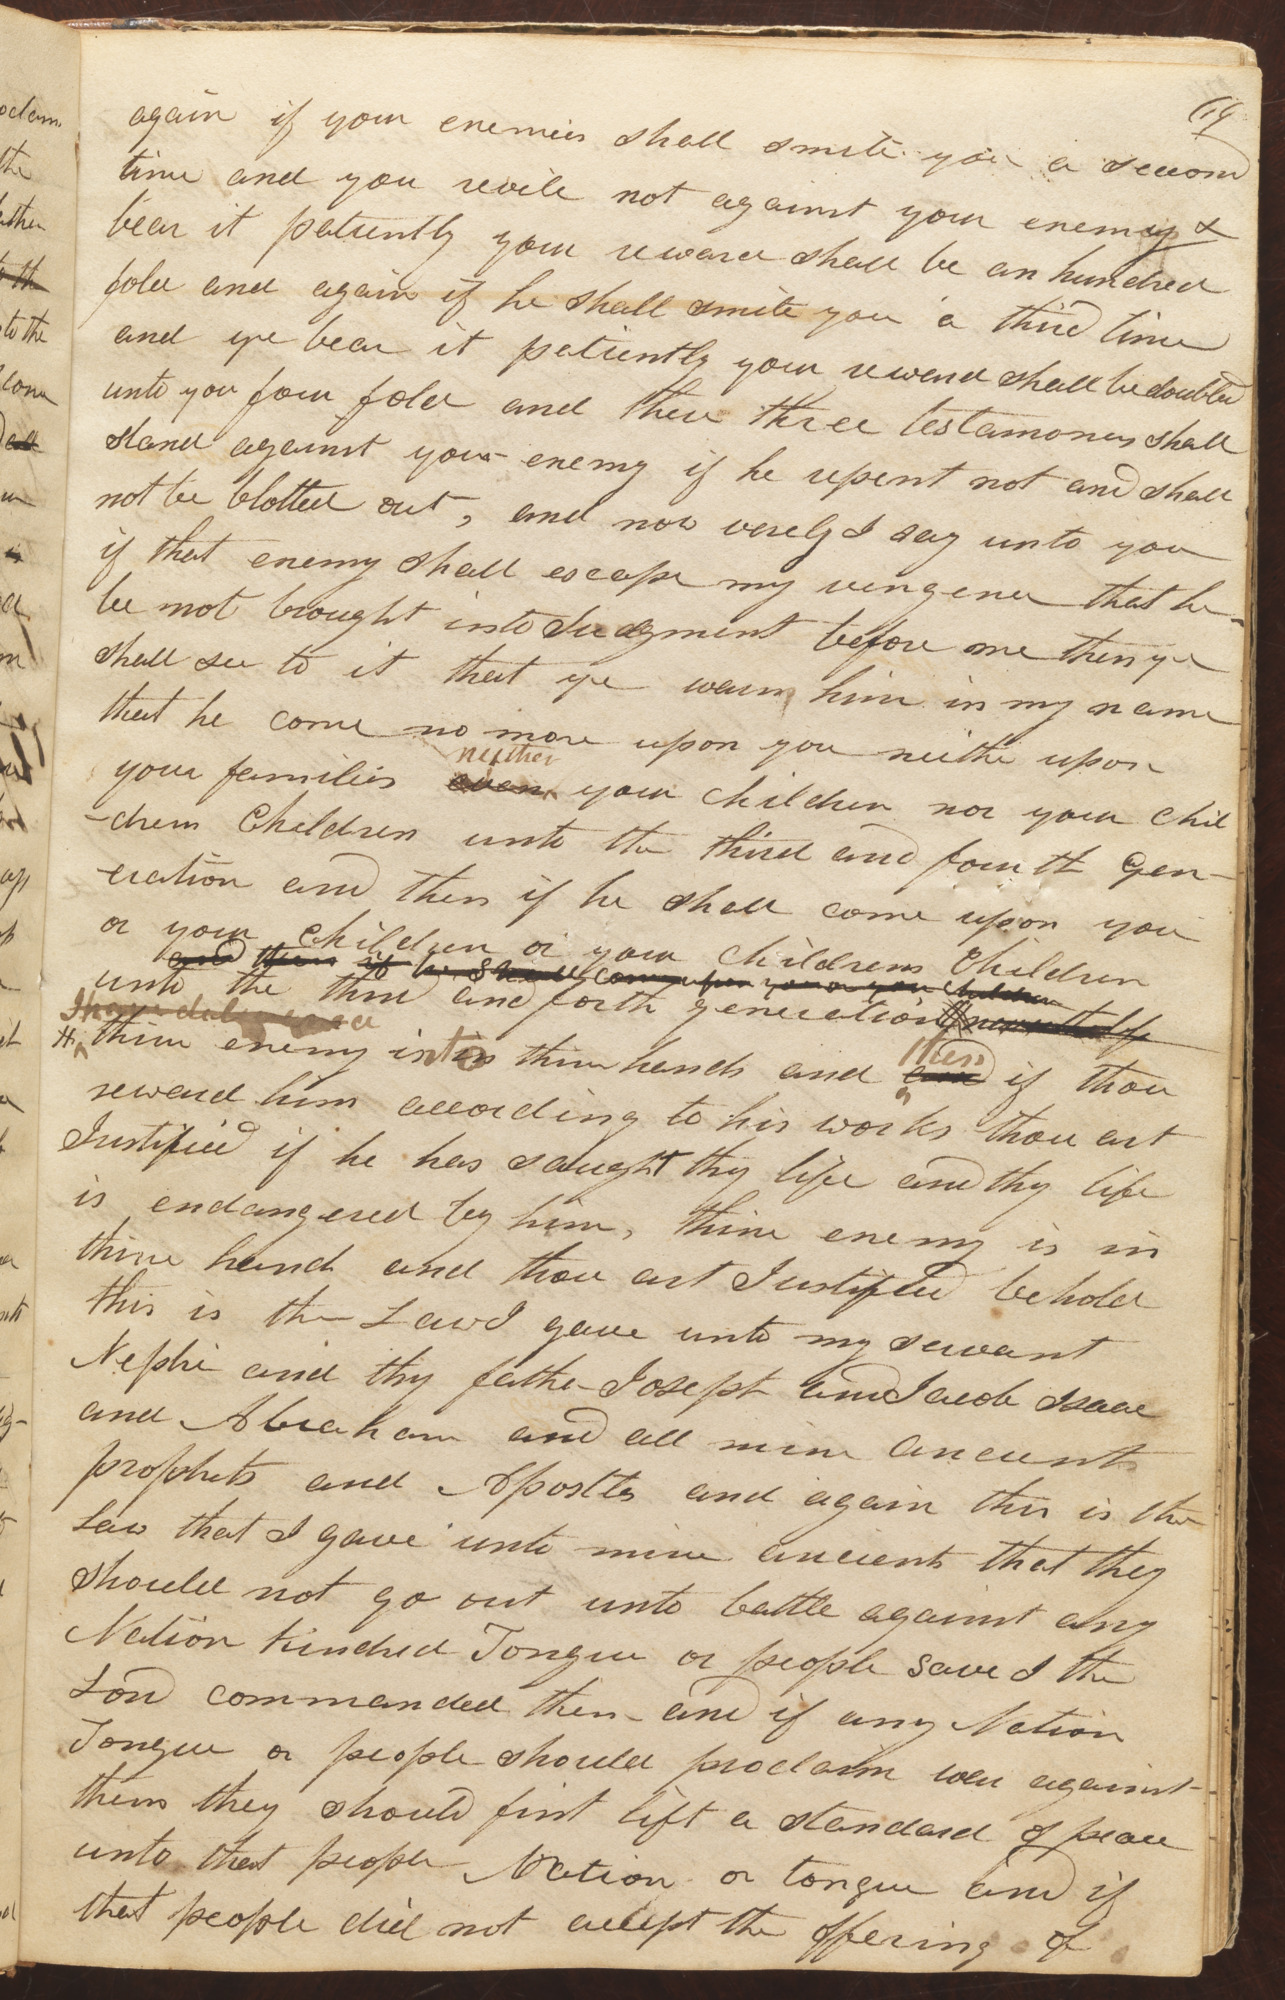 again if your enemies shall smite you a second
time and you revile not against your enemy &
bear it patiently your reward shall be an hundred
fold and again if he shall smite you a third time
and ye bear it patiently your reward shall be doubled
unto you four fold and these three testamonies shall
stand against your enemy if he repent not and shall
not be blotted out, and now verely I say unto you
if that enemy shall escape my vengence that he
be not brought into Judgment before me then ye
shall see to it that ye warn him in my name
that he come no more upon you neither upon
neither
your families even your children nor your chil
-drens Children unto the third and fourth Gen-
eration and then if he shall come upon you
or your children or your childrens Children
and then if he shall come upon you or your children
unto the third and forth generation
I have delivered
thine enemy into thine hands and then if thou
reward him according to his works thou art
Justified if he has saught thy life and thy life
is endangered by him, thine enemy is in
thine hand and thou art Justified behold
this is the Law I gave unto my servant
Nephi and thy father Joseph and Jacob Isaac
and Abraham and all mine ancient
prophets and Apostles and again this is the
Law that I gave unto mine ancients that they
should not go out unto battle against any
Nation Kindred Tongue or people save I the
Lord commanded them and if any Nation
Tongue or people should proclaim war against
them they should first lift a standard of peace
unto that people Nation or tongue and if
that people did not accept the offering of